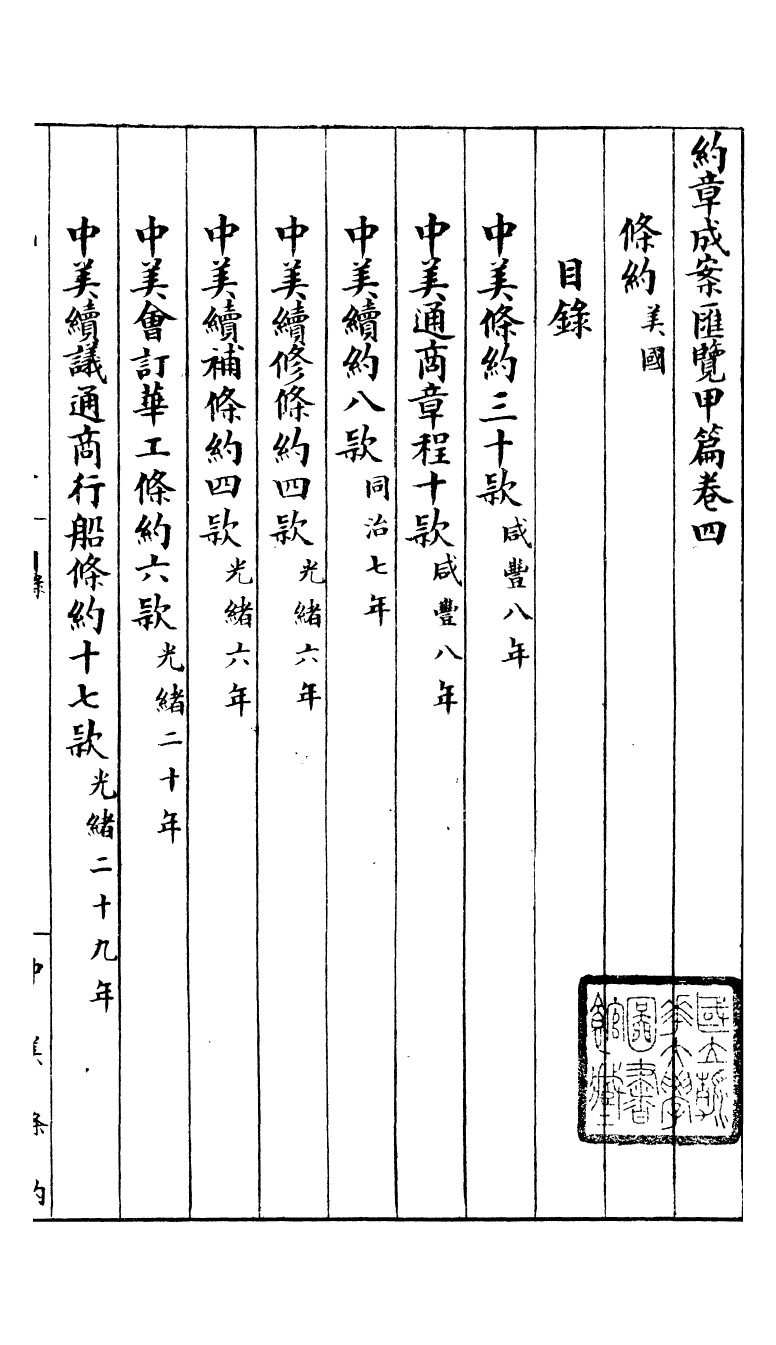 約章成案匯覽甲篇卷四
條約 美國
目錄
中美條約三十款 咸豐八年
中美通商章程十款 咸豐八年
中美續約八款 同治七年
中美續修條約四款 光緒六年
中美續補條約四款 光緒六年
中美會訂華工條約六款 光緒二十年
中美續議通商行船條約十七款 光緒二十九年
中美條約
國立清華大學圖書館藏